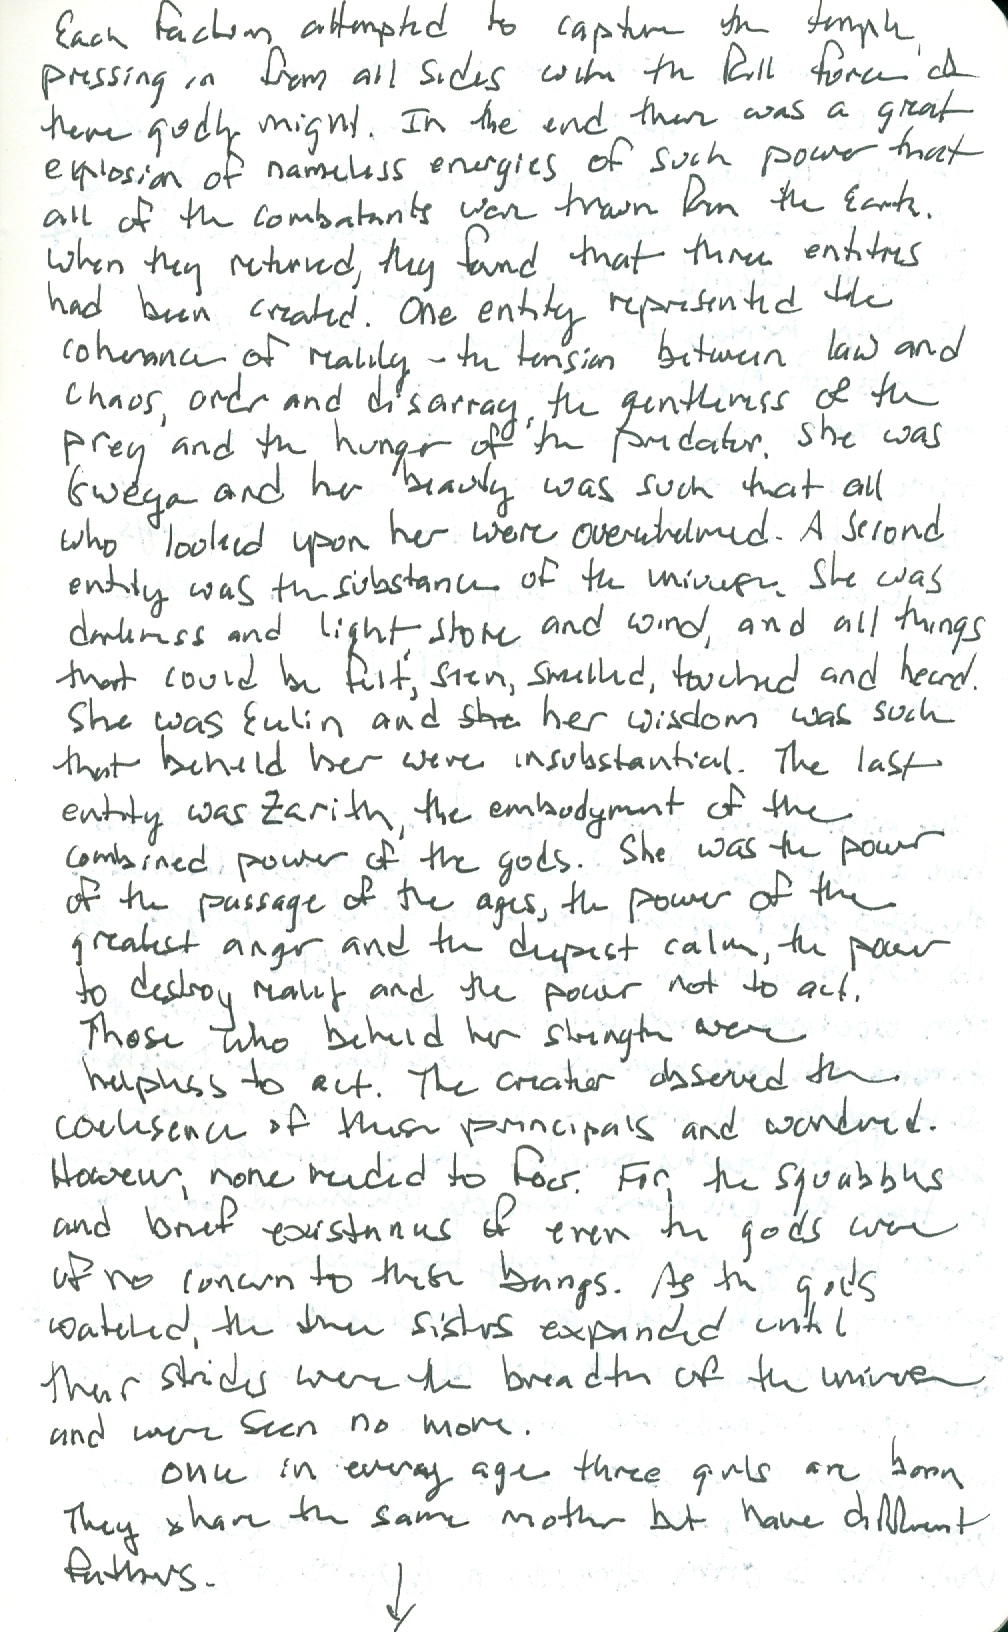 Each faction attempted to capture the temple,
pressing in from all sides with the full force of
there godly might. In the end there was a great
explosion of nameless energies of such power that
all of the combatants were thrown from the Earth.
When they returned, they found that three entities
had been created. One entity represented the
coherance of reality - the tension between law and
chaos, order and disarray, the gentleness of the
prey and the hunger of the predator. She was
Gweya and her beauty was such that all
who looked upon her were overwhelmed. A second
entity was the substance of the universe. She was
darkness and light, stone and wind, and all things
that could be felt, seen, smelled, touched and heard.
She was Eulin and she her wisdom was such
that beheld her were insubstantial. The last
entity was Zarith, the embodyment of the
combined power of the gods. She was the power
of the passage of the ages, the power of the
greatest anger and the deepest calm, the power
to destroy reality and the power not to act.
Those who beheld her strength were
helpless to act. The creator observed the
coelisence of these principals and wondered.
However, none needed to fear. For, the squabbles
and brief existances of even the gods were
of no concern to these beings. As the gods
watched, the three sisters expanded until
their strides were the breadth of the universe
and were seen no more.
Once in every age three girls are born
They share the same mother but have different
fathers.
↓